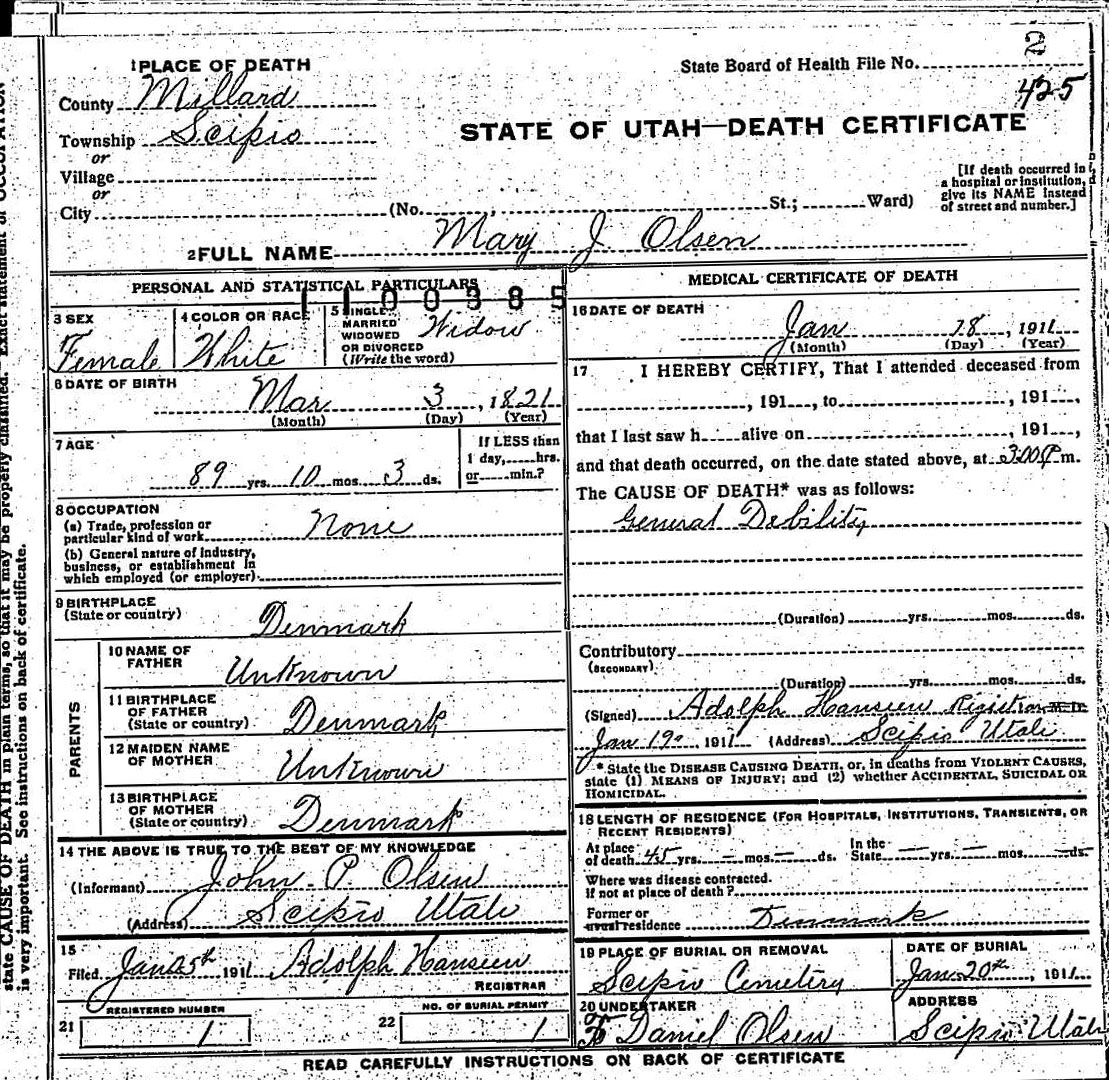 2
State Board of Health File No.
425
1 PLACE OF DEATH
County Millard
Township Scipio
or
Village
or
City (No. St.; Ward)
STATE OF UTAH—DEATH CERTIFICATE
[If death occurred in
a hospital or institution,
give its NAME instead
of street and number.]
2 FULL NAME Mary J. Olsen
PERSONAL AND STATISTICAL PARTICULARS
1100385
3 SEX
Female
4 COLOR OR RACE
White
5 SINGLE
MARRIED
WIDOWED
OR DIVORCED
(Write the word)
Widow
6 DATE OF BIRTH
Mar 3, 1821
(Month) (Day) (Year)
7 AGE
89 yrs. 10 mos. 3 ds.
If LESS than
1 day, hrs.
or min.?
8 OCCUPATION
(a) Trade, profession or
particular kind of work None
(b) General nature of industry,
business, or establishment in
which employed (or employer)
9 BIRTHPLACE
(State or country) Denmark
PARENTS
10 NAME OF
FATHER Unknown
11 BIRTHPLACE
OF FATHER
(State or country) Denmark
12 MAIDEN NAME
OF MOTHER Unknown
13 BIRTHPLACE
OF MOTHER
(State or country) Denmark
14 THE ABOVE IS TRUE TO THE BEST OF MY KNOWLEDGE
(Informant) John P. Olsen
(Address) Scipio Utah
15
Filed Jan 25th 1911 Adolph Hansen
REGISTRAR
21 REGISTERED NUMBER
1
22 NO. OF BURIAL PERMIT
1
MEDICAL CERTIFICATE OF DEATH
16 DATE OF DEATH
Jan 18, 1911
(Month) (Day) (Year)
17 I HEREBY CERTIFY, That I attended deceased from
, 191 , to , 191 ,
that I last saw h alive on , 191 ,
and that death occurred, on the date stated above, at 3:00 P m.
The CAUSE OF DEATH* was as follows:
General Debility
(Duration) yrs. mos. ds.
Contributory
(SECONDARY)
(Duration) yrs. mos. ds.
(Signed) Adolph Hansen Registrar M.D.
Jan 19 1911 (Address) Scipio Utah
* State the DISEASE CAUSING DEATH, or, in deaths from VIOLENT CAUSES,
state (1) MEANS OF INJURY; and (2) whether ACCIDENTAL, SUICIDAL OR
HOMICIDAL.
18 LENGTH OF RESIDENCE (FOR HOSPITALS, INSTITUTIONS, TRANSIENTS, OR
RECENT RESIDENTS)
At place
of death 45 yrs. — mos. — ds.
In the
State — yrs. — mos. — ds.
Where was disease contracted.
If not at place of death?
Former or
usual residence Denmark
19 PLACE OF BURIAL OR REMOVAL
Scipio Cemetery
DATE OF BURIAL
Jan 20th, 1911
20 UNDERTAKER
Daniel Olsen
ADDRESS
Scipio Utah
READ CAREFULLY INSTRUCTIONS ON BACK OF CERTIFICATE
state CAUSE OF DEATH in plain terms, so that it may be properly classified. Exact statement of OCCUPATION
is very important. See instructions on back of certificate.